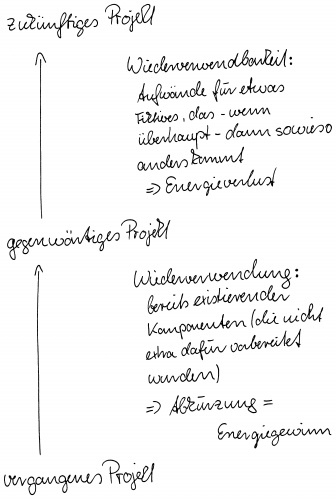 zukünftiges Projekt
Wiederverwendbarkeit:
Aufwände für etwas
Fiktives, das - wenn
überhaupt - dann sowieso
anders kommt
=> Energieverlust
gegenwärtiges Projekt
Wiederverwendung:
bereits existierender
Komponenten (die nicht
extra dafür vorbereitet
wurden)
=> Abkürzung =
Energiegewinn
vergangenes Projekt